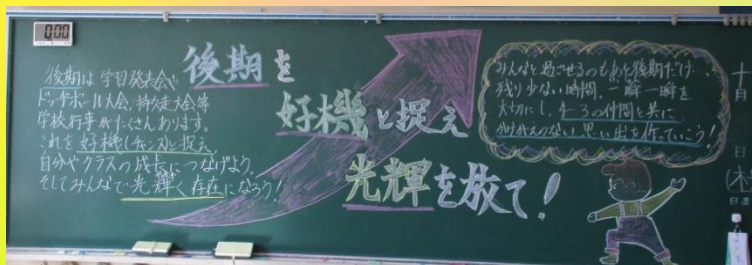 0:00
後期を
好機と捉え
光輝を放て！
後期は学習発表会や
ドッチボール大会、持久走大会等
学校行事がたくさんあります。
これを好機(チャンス)と捉え、
自分やクラスの成長につなげよう。
そしてみんなで光輝く存在になろう！
みんなと過ごせるのもあと後期だけ…
残り少ない時間、一瞬一瞬を
大切にし、4-3の仲間と共に
かけがえのない思い出を作っていこう！
十
月
日
(木)
日直